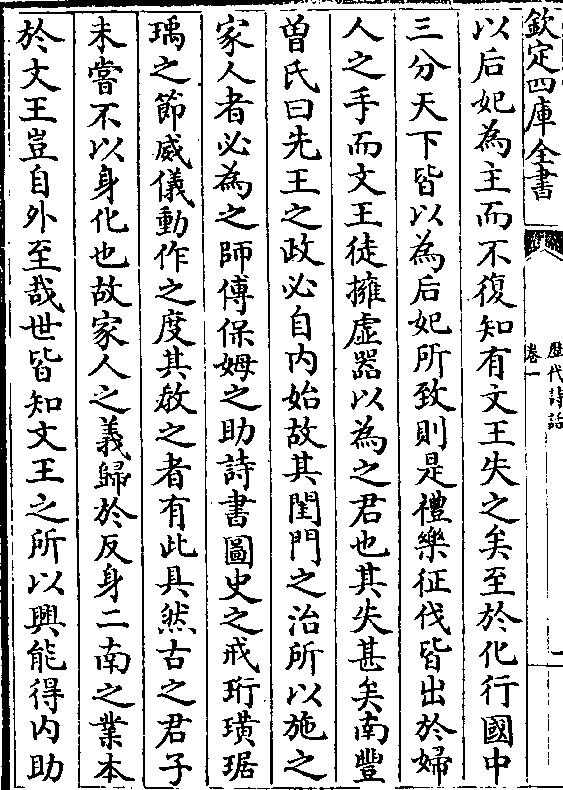 欽定四庫全書
歷代詩話
卷一
以后妃為主而不復知有文王失之矣至於化行國中
三分天下皆以為后妃所致則是禮樂征伐皆出於婦
人之手而文王徒擁虛器以為之君也其失甚矣南豐
曾氏曰先王之政必自内始故其閨門之治所以施之
家人者必為之師傅保姆之助詩書圖史之戒珩璜琚
瑀之節威儀動作之度其教之者有此具然古之君子
未嘗不以身化也故家人之義歸於反身二南之業本
於文王豈自外至哉世皆知文王之所以興能得内助